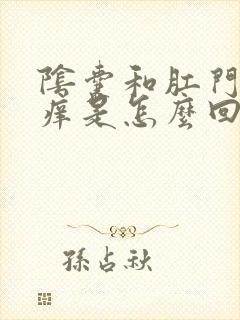 陰囊和肛門
癢是怎麼回
孫占秋